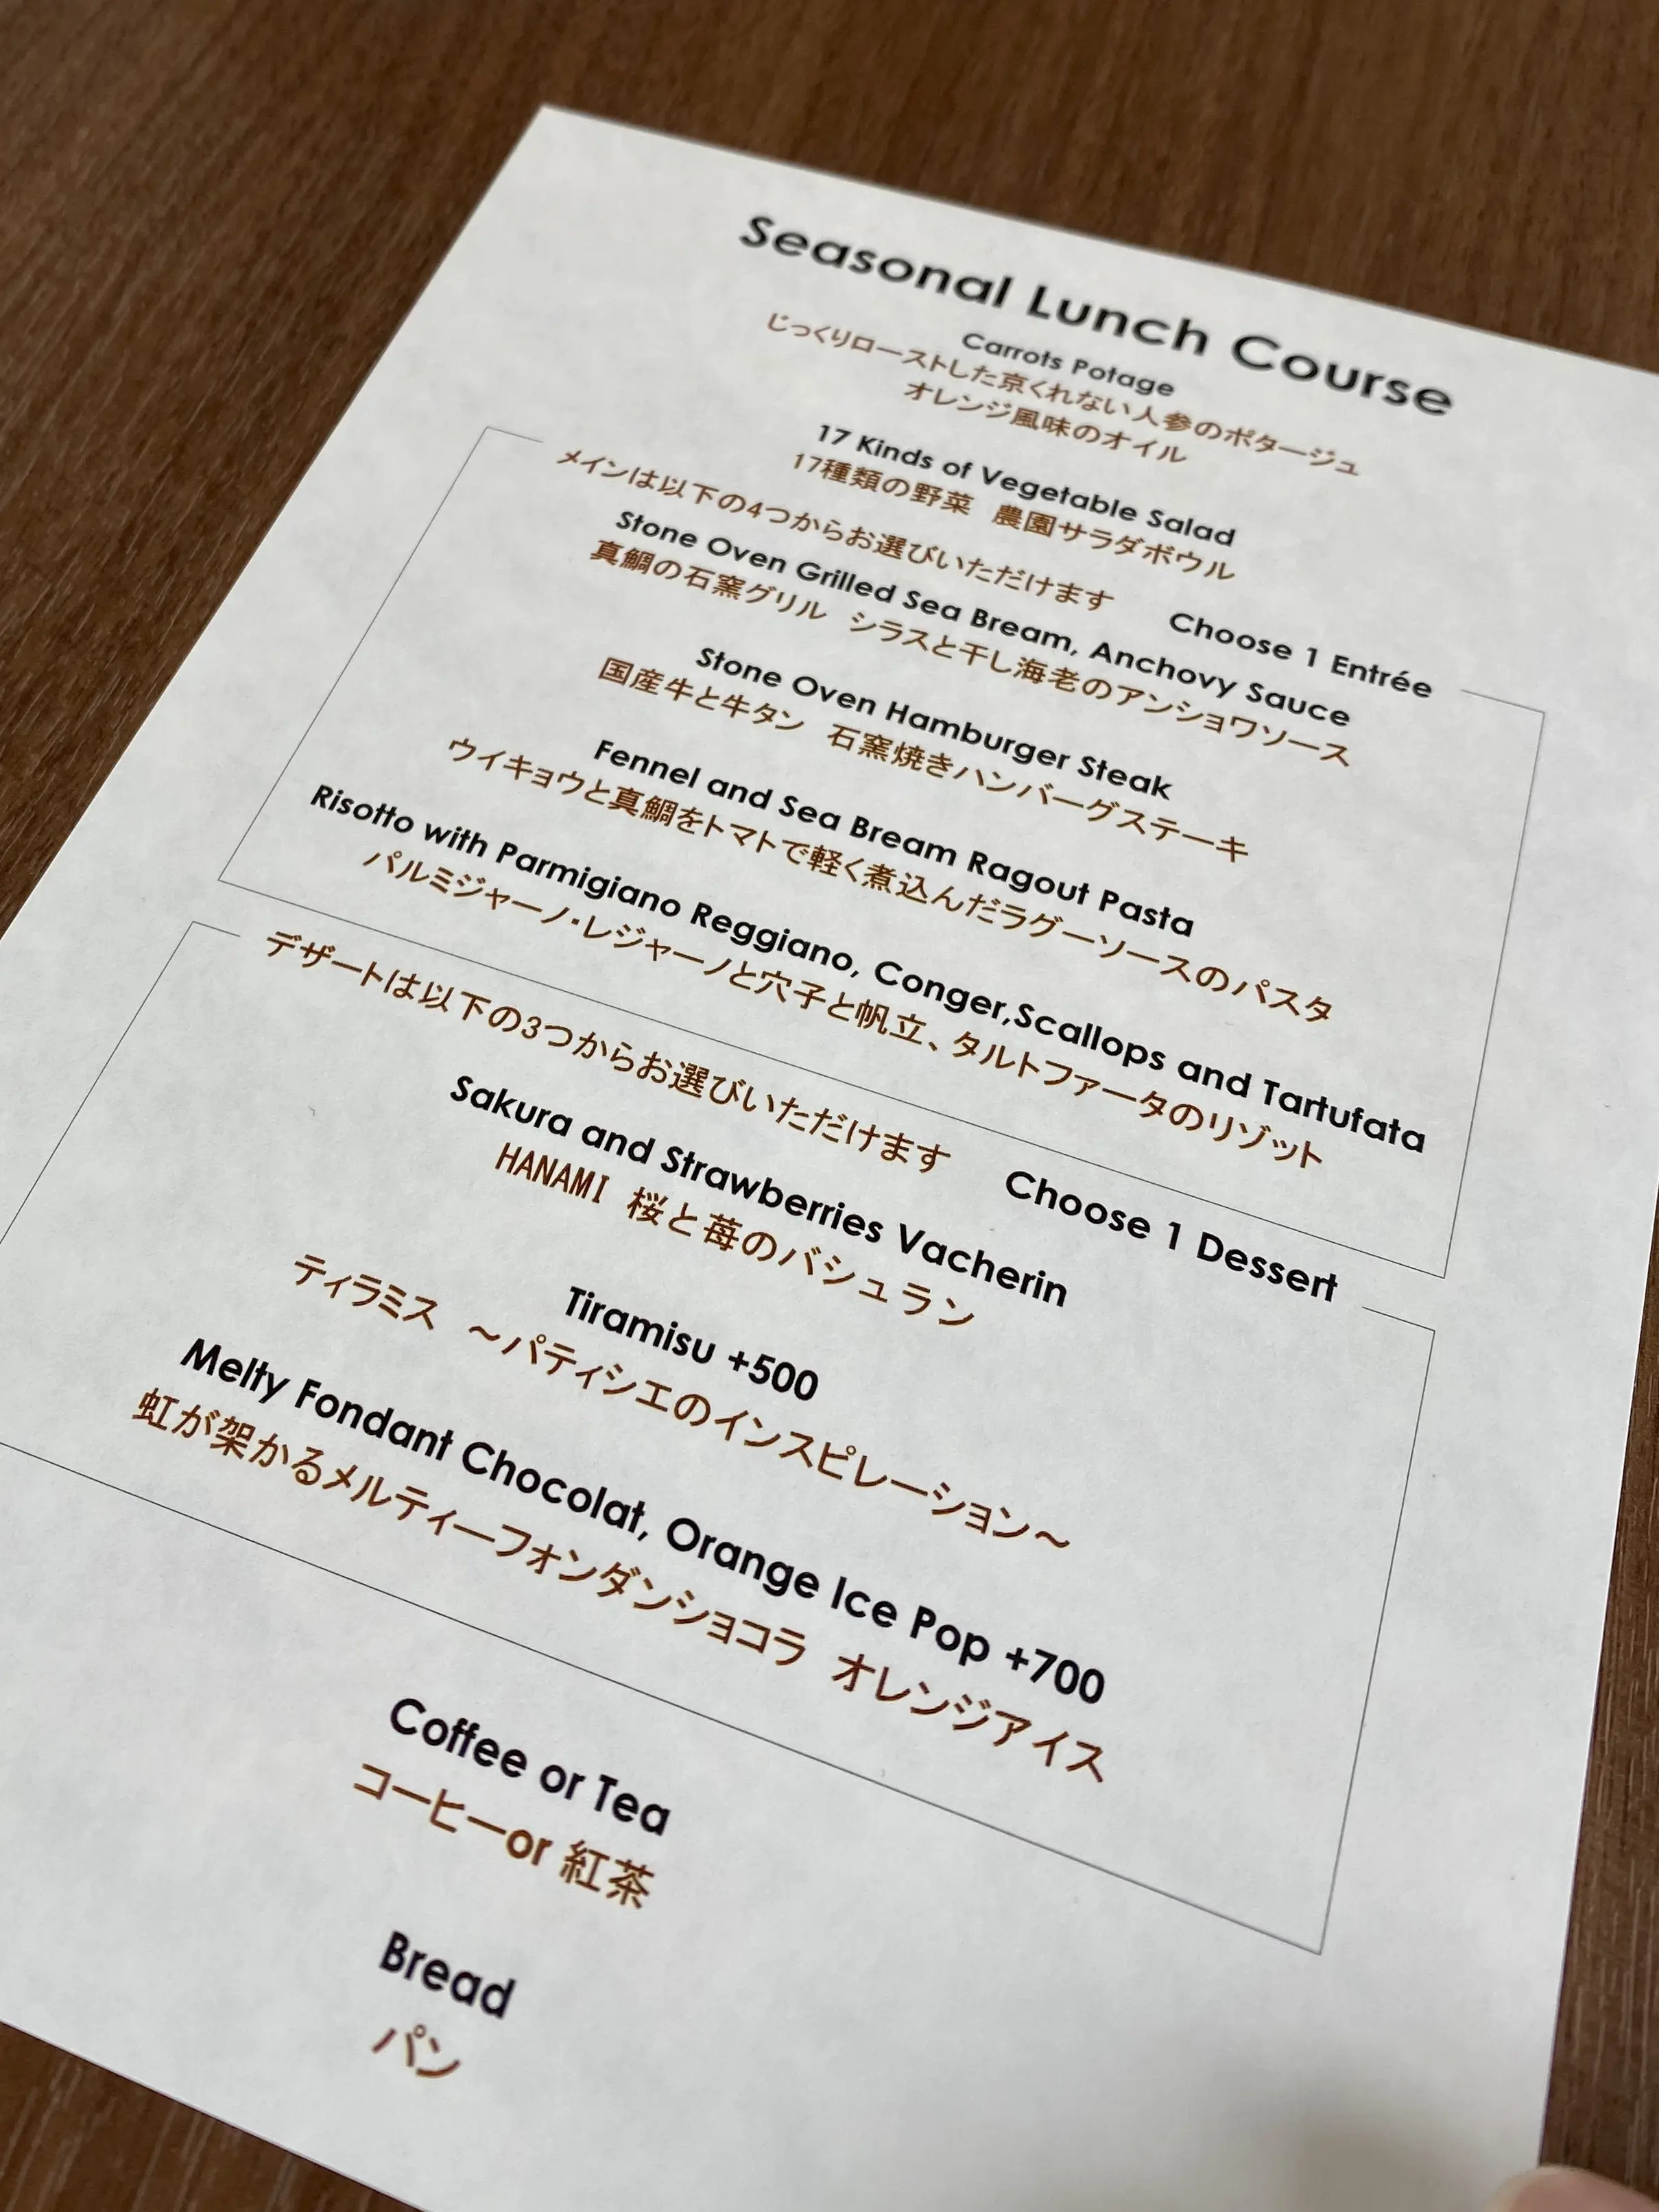 Seasonal Lunch Course
Carrots Potage
じっくりローストした京くれない人参のポタージュ
オレンジ風味のオイル
17 Kinds of Vegetable Salad
17種類の野菜 農園サラダボウル
メインは以下の4つからお選びいただけます Choose 1 Entrée
Stone Oven Grilled Sea Bream, Anchovy Sauce
真鯛の石窯グリル シラスと干し海老のアンショワソース
Stone Oven Hamburger Steak
国産牛と牛タン 石窯焼きハンバーグステーキ
Fennel and Sea Bream Ragout Pasta
ウイキョウと真鯛をトマトで軽く煮込んだラグーソースのパスタ
Risotto with Parmigiano Reggiano, Conger,Scallops and Tartufata
パルミジャーノ・レジャーノと穴子と帆立、タルトファータのリゾット
デザートは以下の3つからお選びいただけます Choose 1 Dessert
Sakura and Strawberries Vacherin
HANAMI 桜と苺のバシュラン
Tiramisu +500
ティラミス ～パティシエのインスピレーション～
Melty Fondant Chocolat, Orange Ice Pop +700
虹が架かるメルティーフォンダンショコラ オレンジアイス
Coffee or Tea
コーヒーor 紅茶
Bread
パン